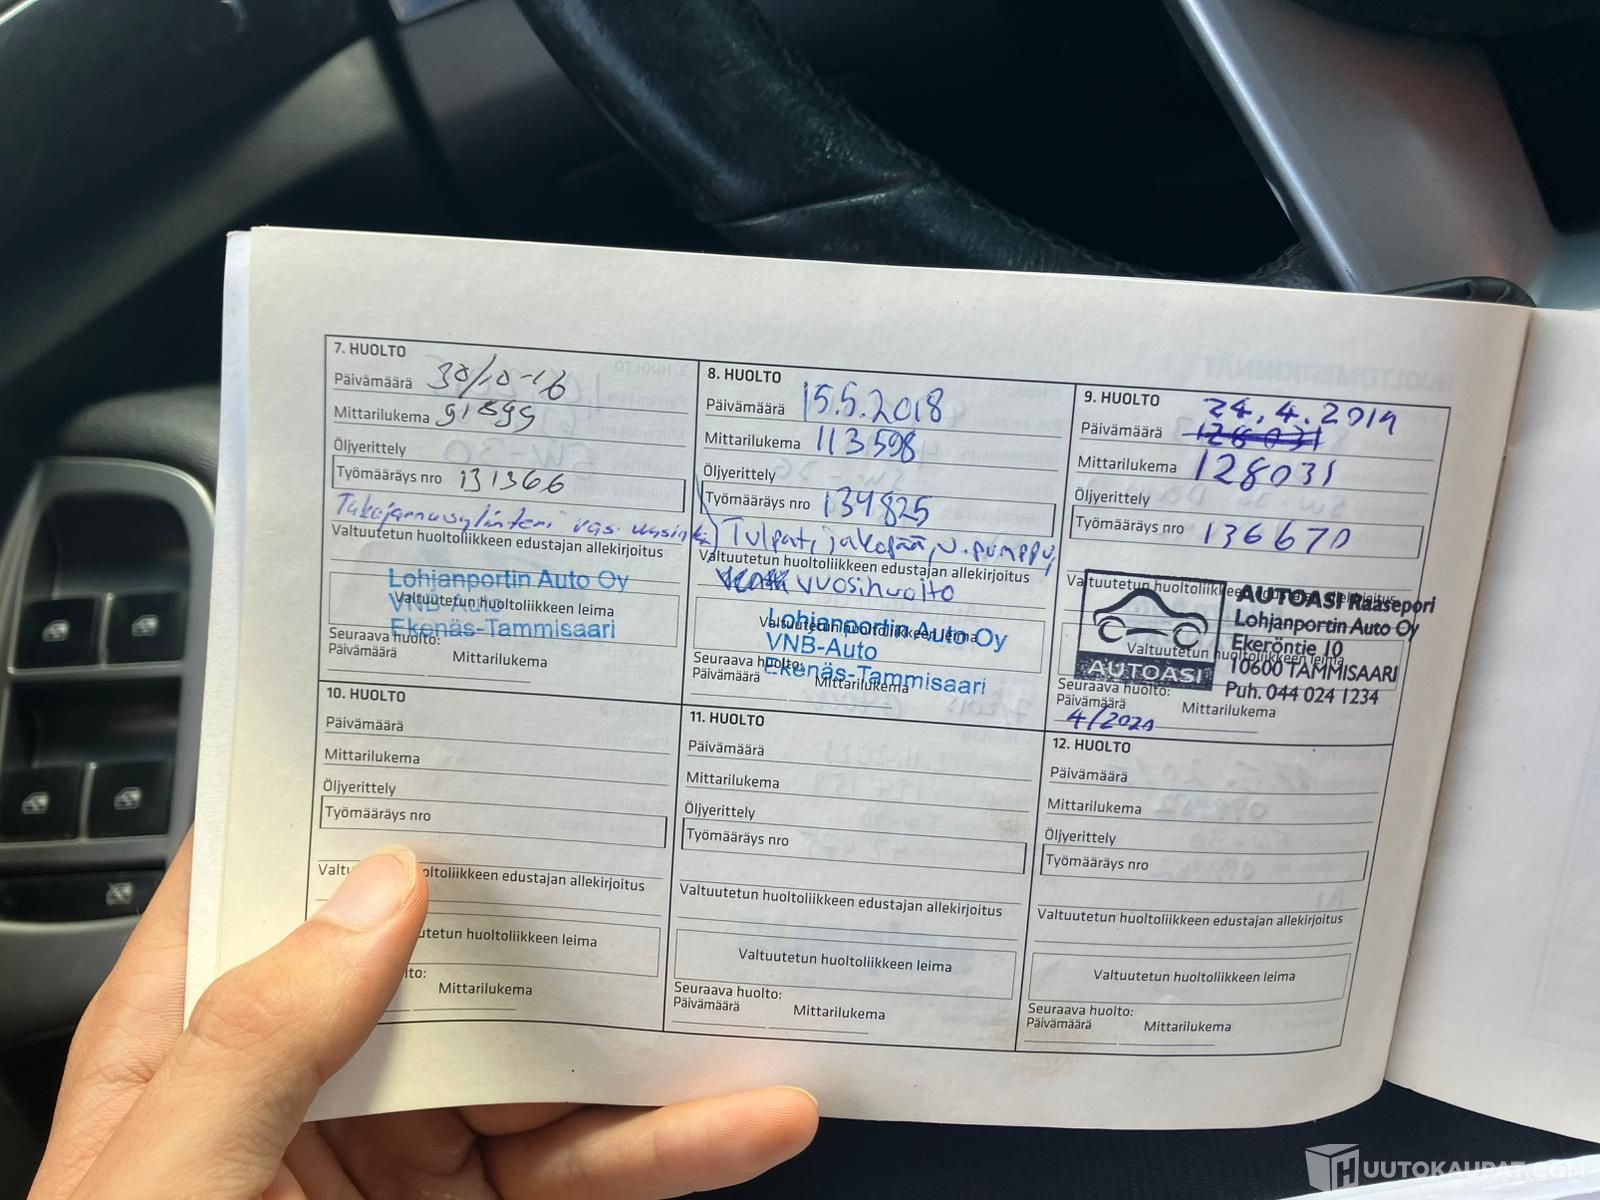 7. HUOLTO
Päivämäärä 30/10-16
Mittarilukema 91899
Öljyerittely
Työmääräys nro 131366
Takajarrusylinteri vas. uusittu
Valtuutetun huoltoliikkeen edustajan allekirjoitus
Lohjanportin Auto Oy
Valtuutetun huoltoliikkeen leima
VNB-Auto
Ekenäs-Tammisaari
Seuraava huolto:
Päivämäärä Mittarilukema
8. HUOLTO
Päivämäärä 15.5.2018
Mittarilukema 113598
Öljyerittely
Työmääräys nro 134825
Tulpat, jakopää, v. pumppu,
Valtuutetun huoltoliikkeen edustajan allekirjoitus
vuosihuolto
Lohjanportin Auto Oy
Valtuutetun huoltoliikkeen leima
VNB-Auto
Ekenäs-Tammisaari
Seuraava huolto:
Päivämäärä Mittarilukema
9. HUOLTO
24.4.2019
Päivämäärä 128031
Mittarilukema 128031
Öljyerittely
Työmääräys nro 136670
Valtuutetun huoltoliikkeen edustajan allekirjoitus
AUTOASI Raasepori
Lohjanportin Auto Oy
Ekeröntie 10
Valtuutetun huoltoliikkeen leima
10600 TAMMISAARI
AUTOASI
Puh. 044 024 1234
Seuraava huolto:
Päivämäärä Mittarilukema
4/2020
10. HUOLTO
Päivämäärä
Mittarilukema
Öljyerittely
Työmääräys nro
edustajan allekirjoitus
huoltoliikkeen leima
Mittarilukema
11. HUOLTO
Päivämäärä
Mittarilukema
Öljyerittely
Työmääräys nro
Valtuutetun huoltoliikkeen edustajan allekirjoitus
Valtuutetun huoltoliikkeen leima
Seuraava huolto:
Päivämäärä Mittarilukema
12. HUOLTO
Päivämäärä
Mittarilukema
Öljyerittely
Työmääräys nro
Valtuutetun huoltoliikkeen edustajan allekirjoitus
Valtuutetun huoltoliikkeen leima
Seuraava huolto:
Päivämäärä Mittarilukema
HUUTOKAUPAT.COM